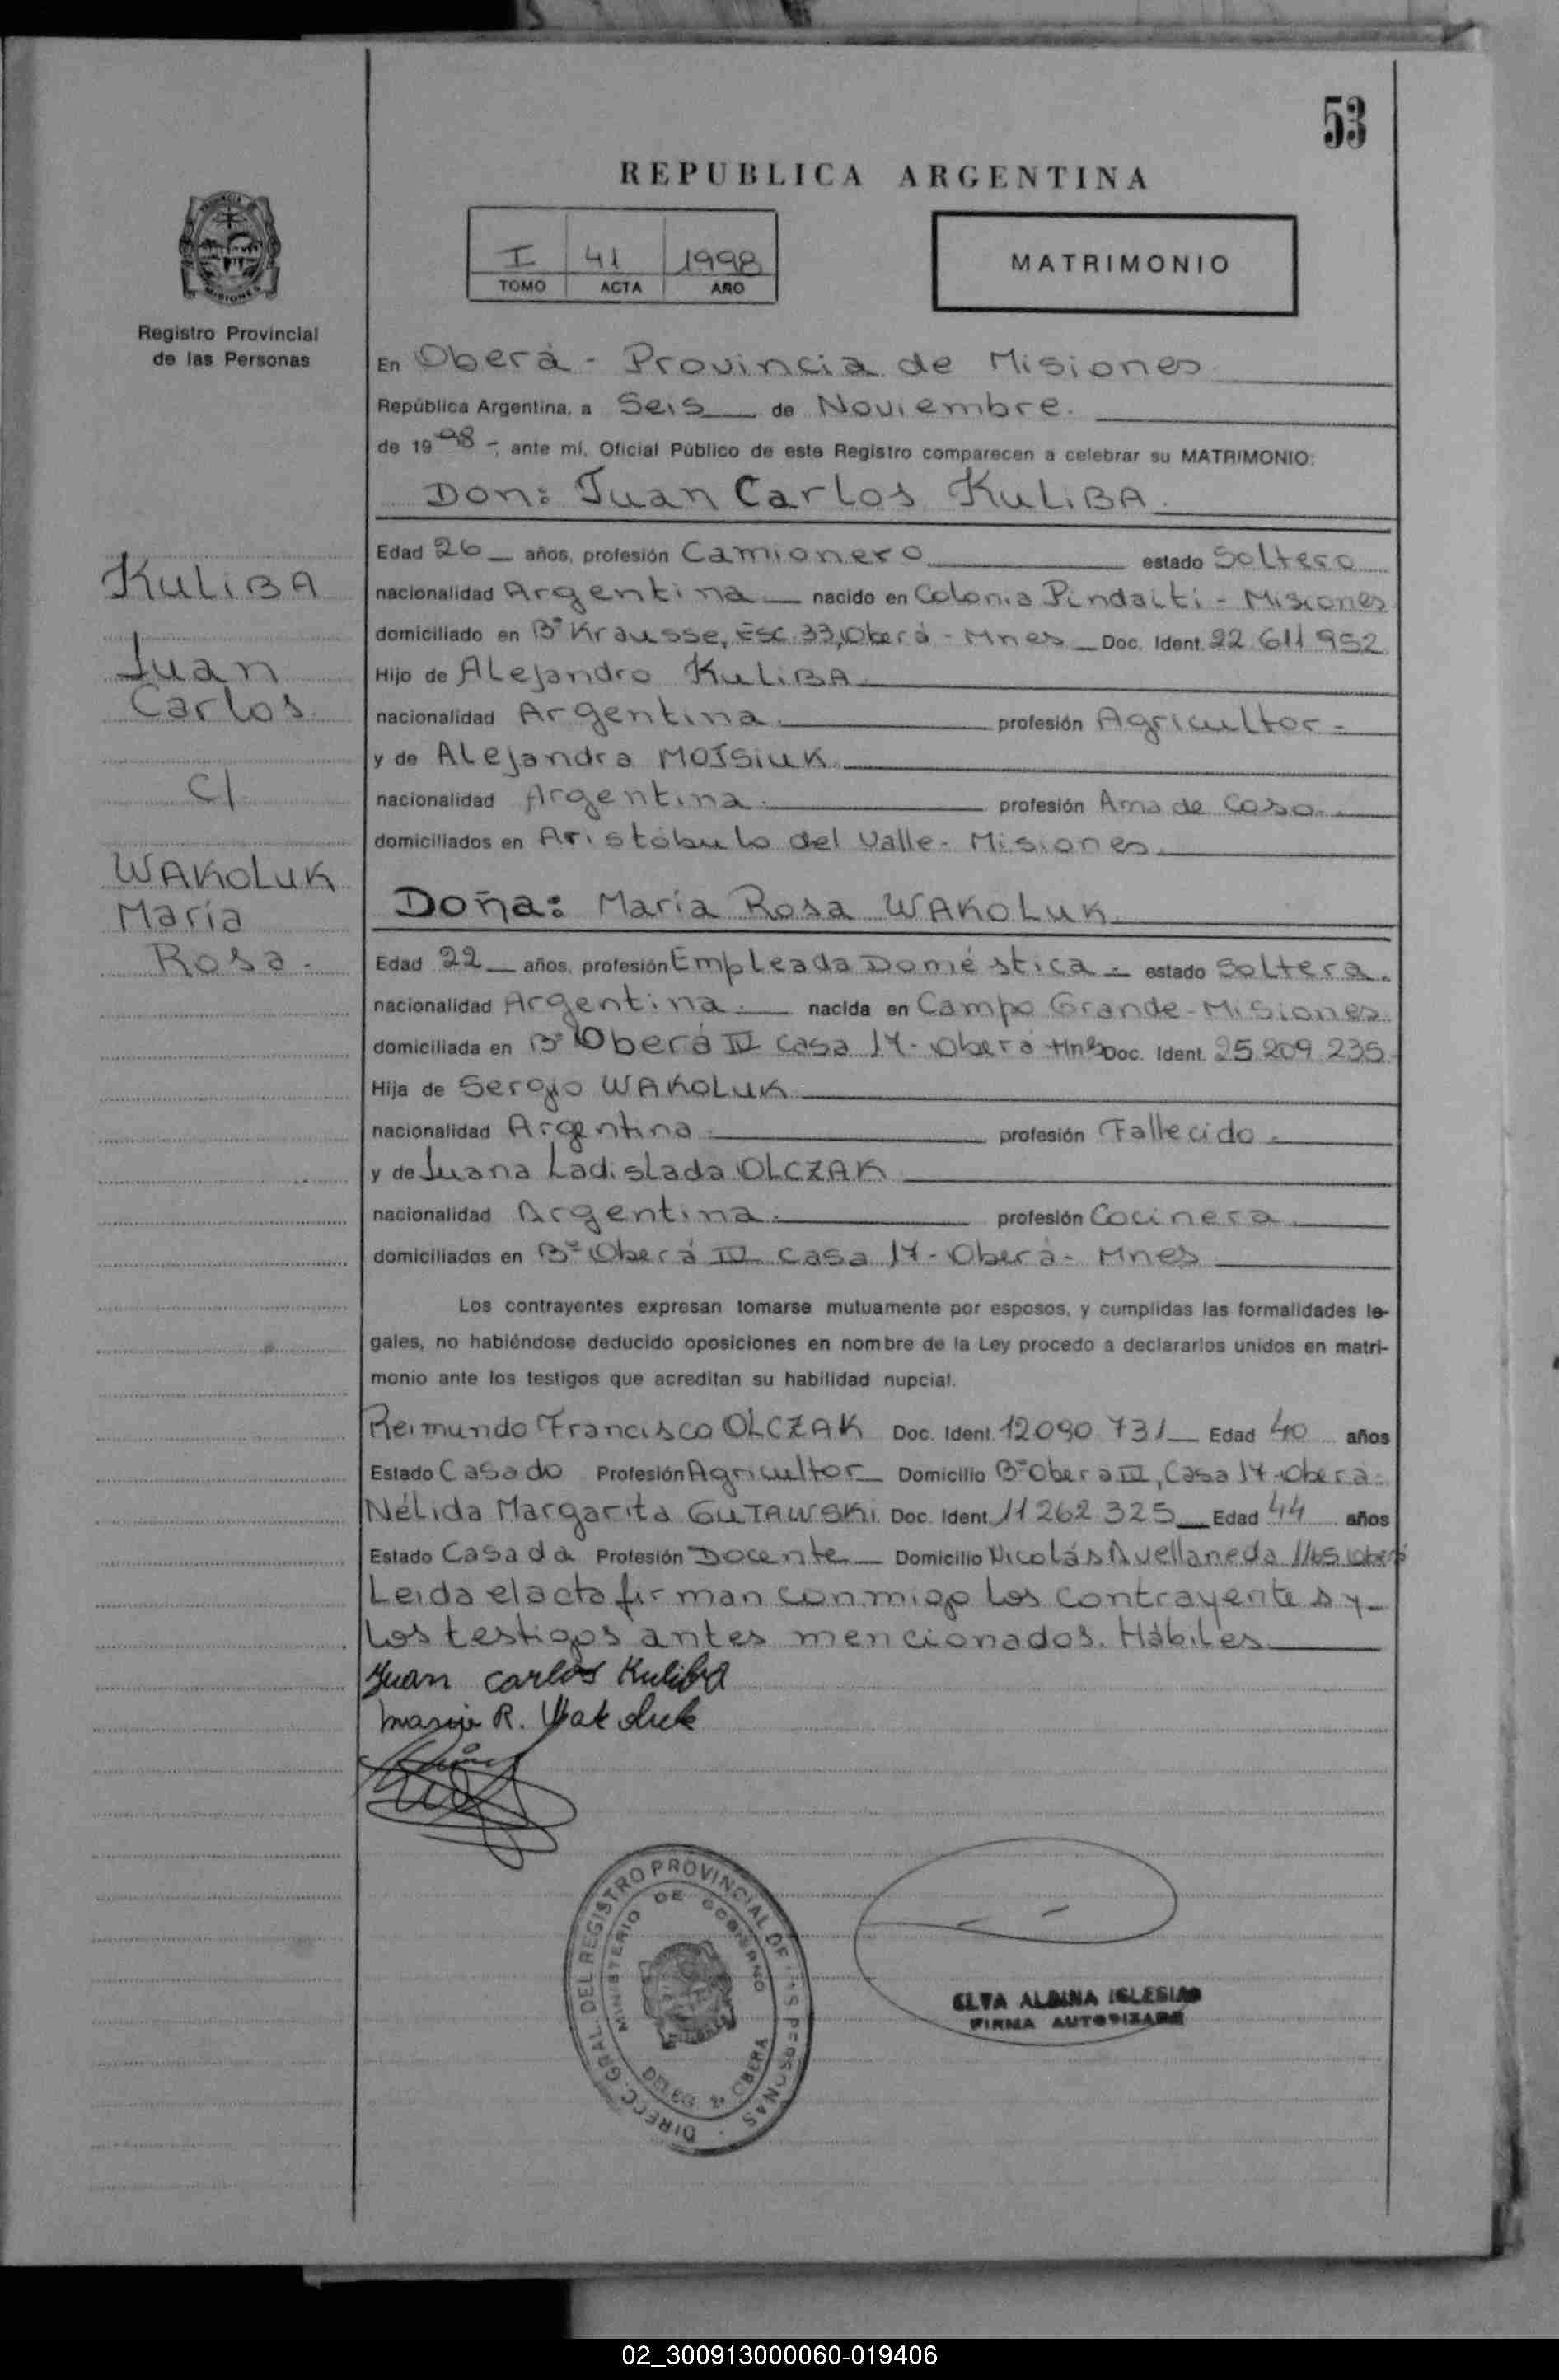 53
REPUBLICA ARGENTINA
I 41 1998
TOMO ACTA AÑO
MATRIMONIO
Registro Provincial
de las Personas
En Oberá - Provincia de Misiones
República Argentina, a Seis de Noviembre.
de 1998 - ante mí, Oficial Público de este Registro comparecen a celebrar su MATRIMONIO:
Don: Juan Carlos KuLiBA.
KuLiBA
Juan
Carlos
c/
WAKOLUK
María
Rosa.
Edad 26 años, profesión Camionero estado Soltero
nacionalidad Argentina nacido en Colonia Pindaití - Misiones
domiciliado en Bº Krausse, Esc. 33, Oberá - Mnes Doc. Ident. 22 611 952
Hijo de Alejandro KuLiBA
nacionalidad Argentina profesión Agricultor -
y de Alejandra MOISiUK
nacionalidad Argentina. profesión Ama de Casa.
domiciliados en Aristóbulo del Valle - Misiones.
Doña: María Rosa WAKOLUK.
Edad 22 años, profesión Empleada Doméstica - estado Soltera.
nacionalidad Argentina. nacida en Campo Grande - Misiones
domiciliada en Bº Oberá IV Casa 17 - Oberá Mnes Doc. Ident. 25 209 235
Hija de Sergio WAKOLUK
nacionalidad Argentina profesión Fallecido -
y de Juana Ladislada OLCZAK
nacionalidad Argentina. profesión Cocinera
domiciliados en Bº Oberá IV Casa 17 - Oberá - Mnes
Los contrayentes expresan tomarse mutuamente por esposos, y cumplidas las formalidades le-
gales, no habiéndose deducido oposiciones en nombre de la Ley procedo a declararlos unidos en matri-
monio ante los testigos que acreditan su habilidad nupcial.
Reimundo Francisco OLCZAK Doc. Ident. 12090 731 Edad 40 años
Estado Casado Profesión Agricultor Domicilio Bº Oberá IV, Casa 17 - Oberá.
Nélida Margarita GUTAWSKi Doc. Ident. 11262 325 Edad 44 años
Estado Casada Profesión Docente Domicilio Nicolás Avellaneda Oberá
Leída el acta firman conmigo los contrayentes y
los testigos antes mencionados. Hábiles
Juan Carlos Kuliba
Maria R. Wakoluk
DIRECC. GRAL. DEL REGISTRO PROVINCIAL DE LAS PERSONAS
MINISTERIO DE GOBIERNO
DELEG. OBERA
ELVA ALBINA IGLESIAS
FIRMA AUTORIZADA
02_300913000060-019406